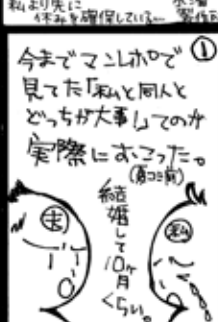 私より先に
休みを確保している…
①
今までマンレポで
見てた「私と同人と
どっちが大事」ってのが
実際におこった。
(夏コミ前)
結婚して10ヶ月くらい。
夫
私